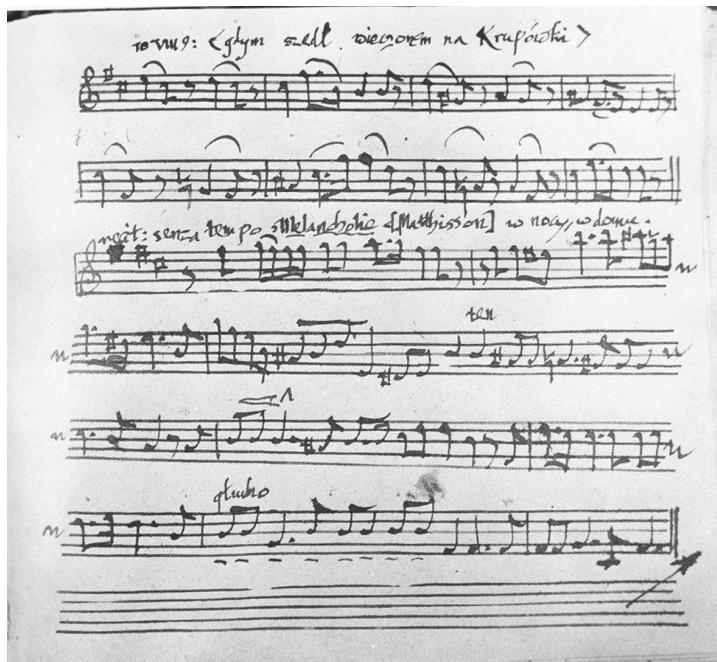 10 VIII 9: < gdym szedł wieczorem na Krupówki >
recit: senza tempo Melancholie [Matthisson] w nocy, w domu.
ten
głucho